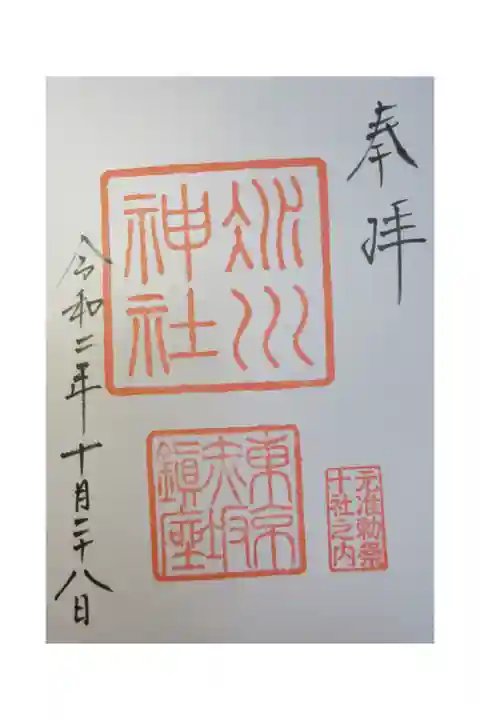 奉拝
氷川
神社
東京
赤坂
鎮座
元准勅祭
十社之内
令和二年十月二十八日